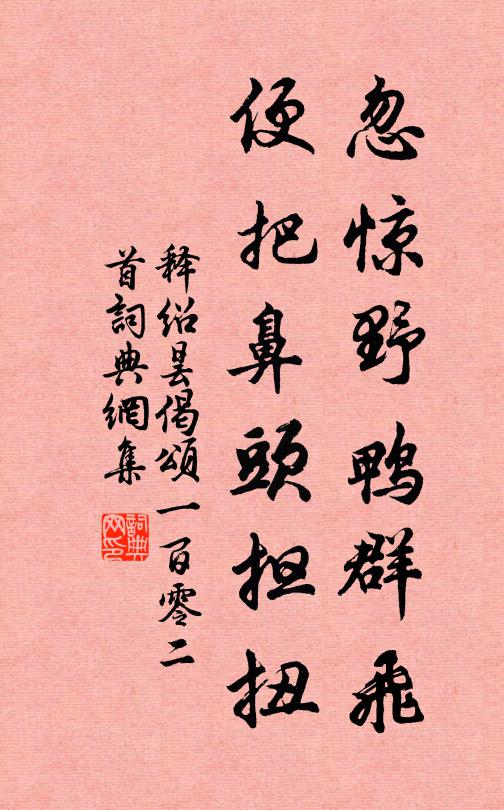 忽惊野鸭群飛
便把鼻頭担扭
释绍昙偈頌一百零二
首詞典網集
詞典网印